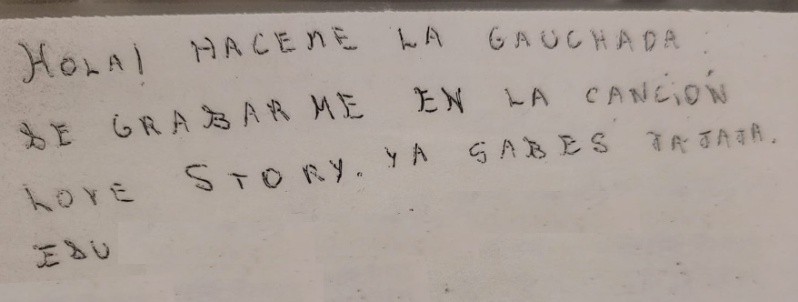 HOLA! HACEME LA GAUCHADA
DE GRABARME EN LA CANCIÓN
LOVE STORY. YA SABES JAJAJA.
EDU